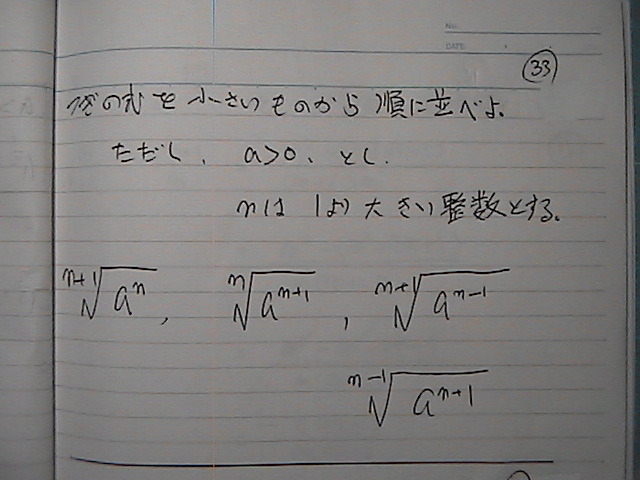 NO.
DATE
33
次の式を小さいものから順に並べよ。
ただし、a>0、とし、
nは1より大きい整数とする。
ⁿ⁺¹√aⁿ, ⁿ√aⁿ⁺¹, ⁿ⁺¹√aⁿ⁻¹
ⁿ⁻¹√aⁿ⁺¹